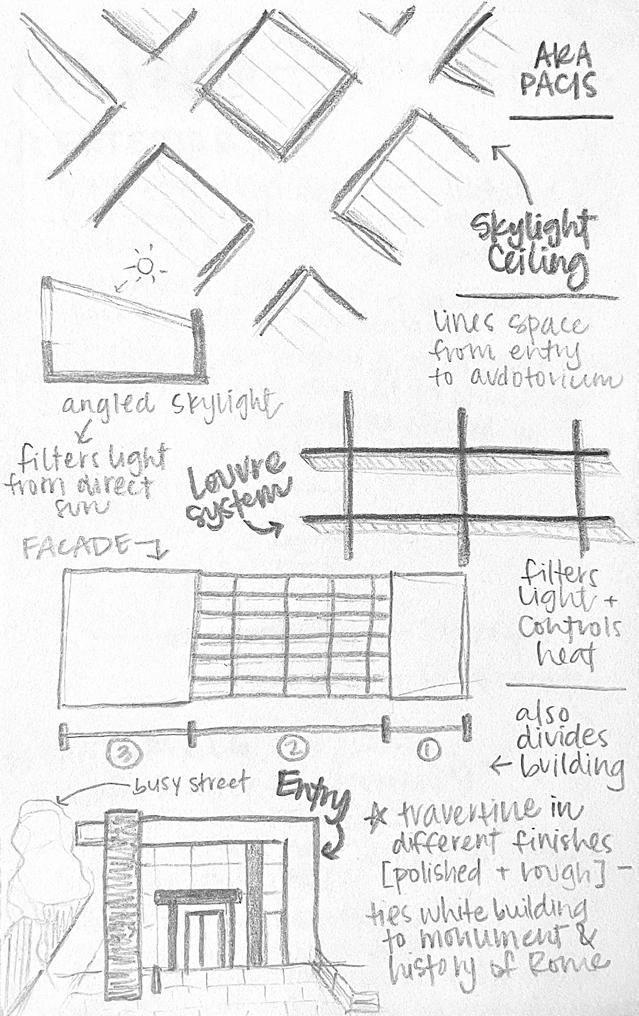 ARA
PACIS
Skylight
Ceiling
lines space
from entry
to audotorium
angled skylight
filters light
from direct
sun
Louvre
system
FACADE
filters
light +
controls
heat
also
divides
building
3
2
1
busy street
Entry
travertine in
different finishes
[polished + rough] -
ties white building
to monument &
history of Rome